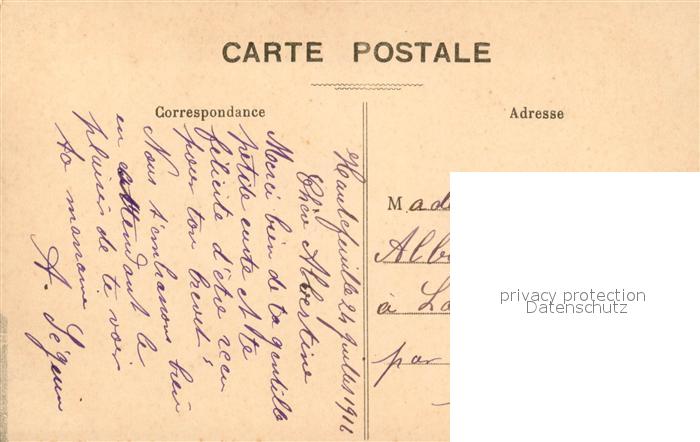 CARTE POSTALE
Correspondance
Hautefeuille 24 Juillet 1912
Chère Albertine
Merci bien de ta gentille
petite carte et te
félicite d'être reçu
pour ton brevet
Nous t'embrassons bien
en attendant le
plaisir de te voir
ta marraine
A. Séguin
Adresse
Made
Alb
à La
par
privacy protection
Datenschutz